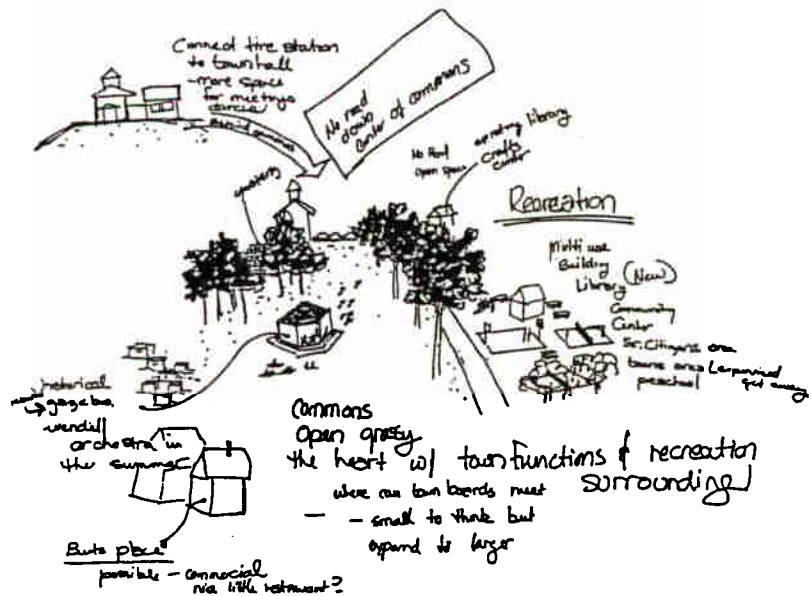 Connect fire station
to town hall
- more space
for meetings
No road
down
center of commons
No Road
open space
existing library
Crafts
Center
Recreation
Multi use
Building
Library (New)
Community
Center
Sr. Citizens area
teens area
preschool
historical
gazebo
wendell
orchestra in
the summer
Commons
Open grassy
the heart w/ town functions & recreation
surrounding
where can town boards meet
- small to think but
expand to larger
possible - commercial
nice little restaurant?